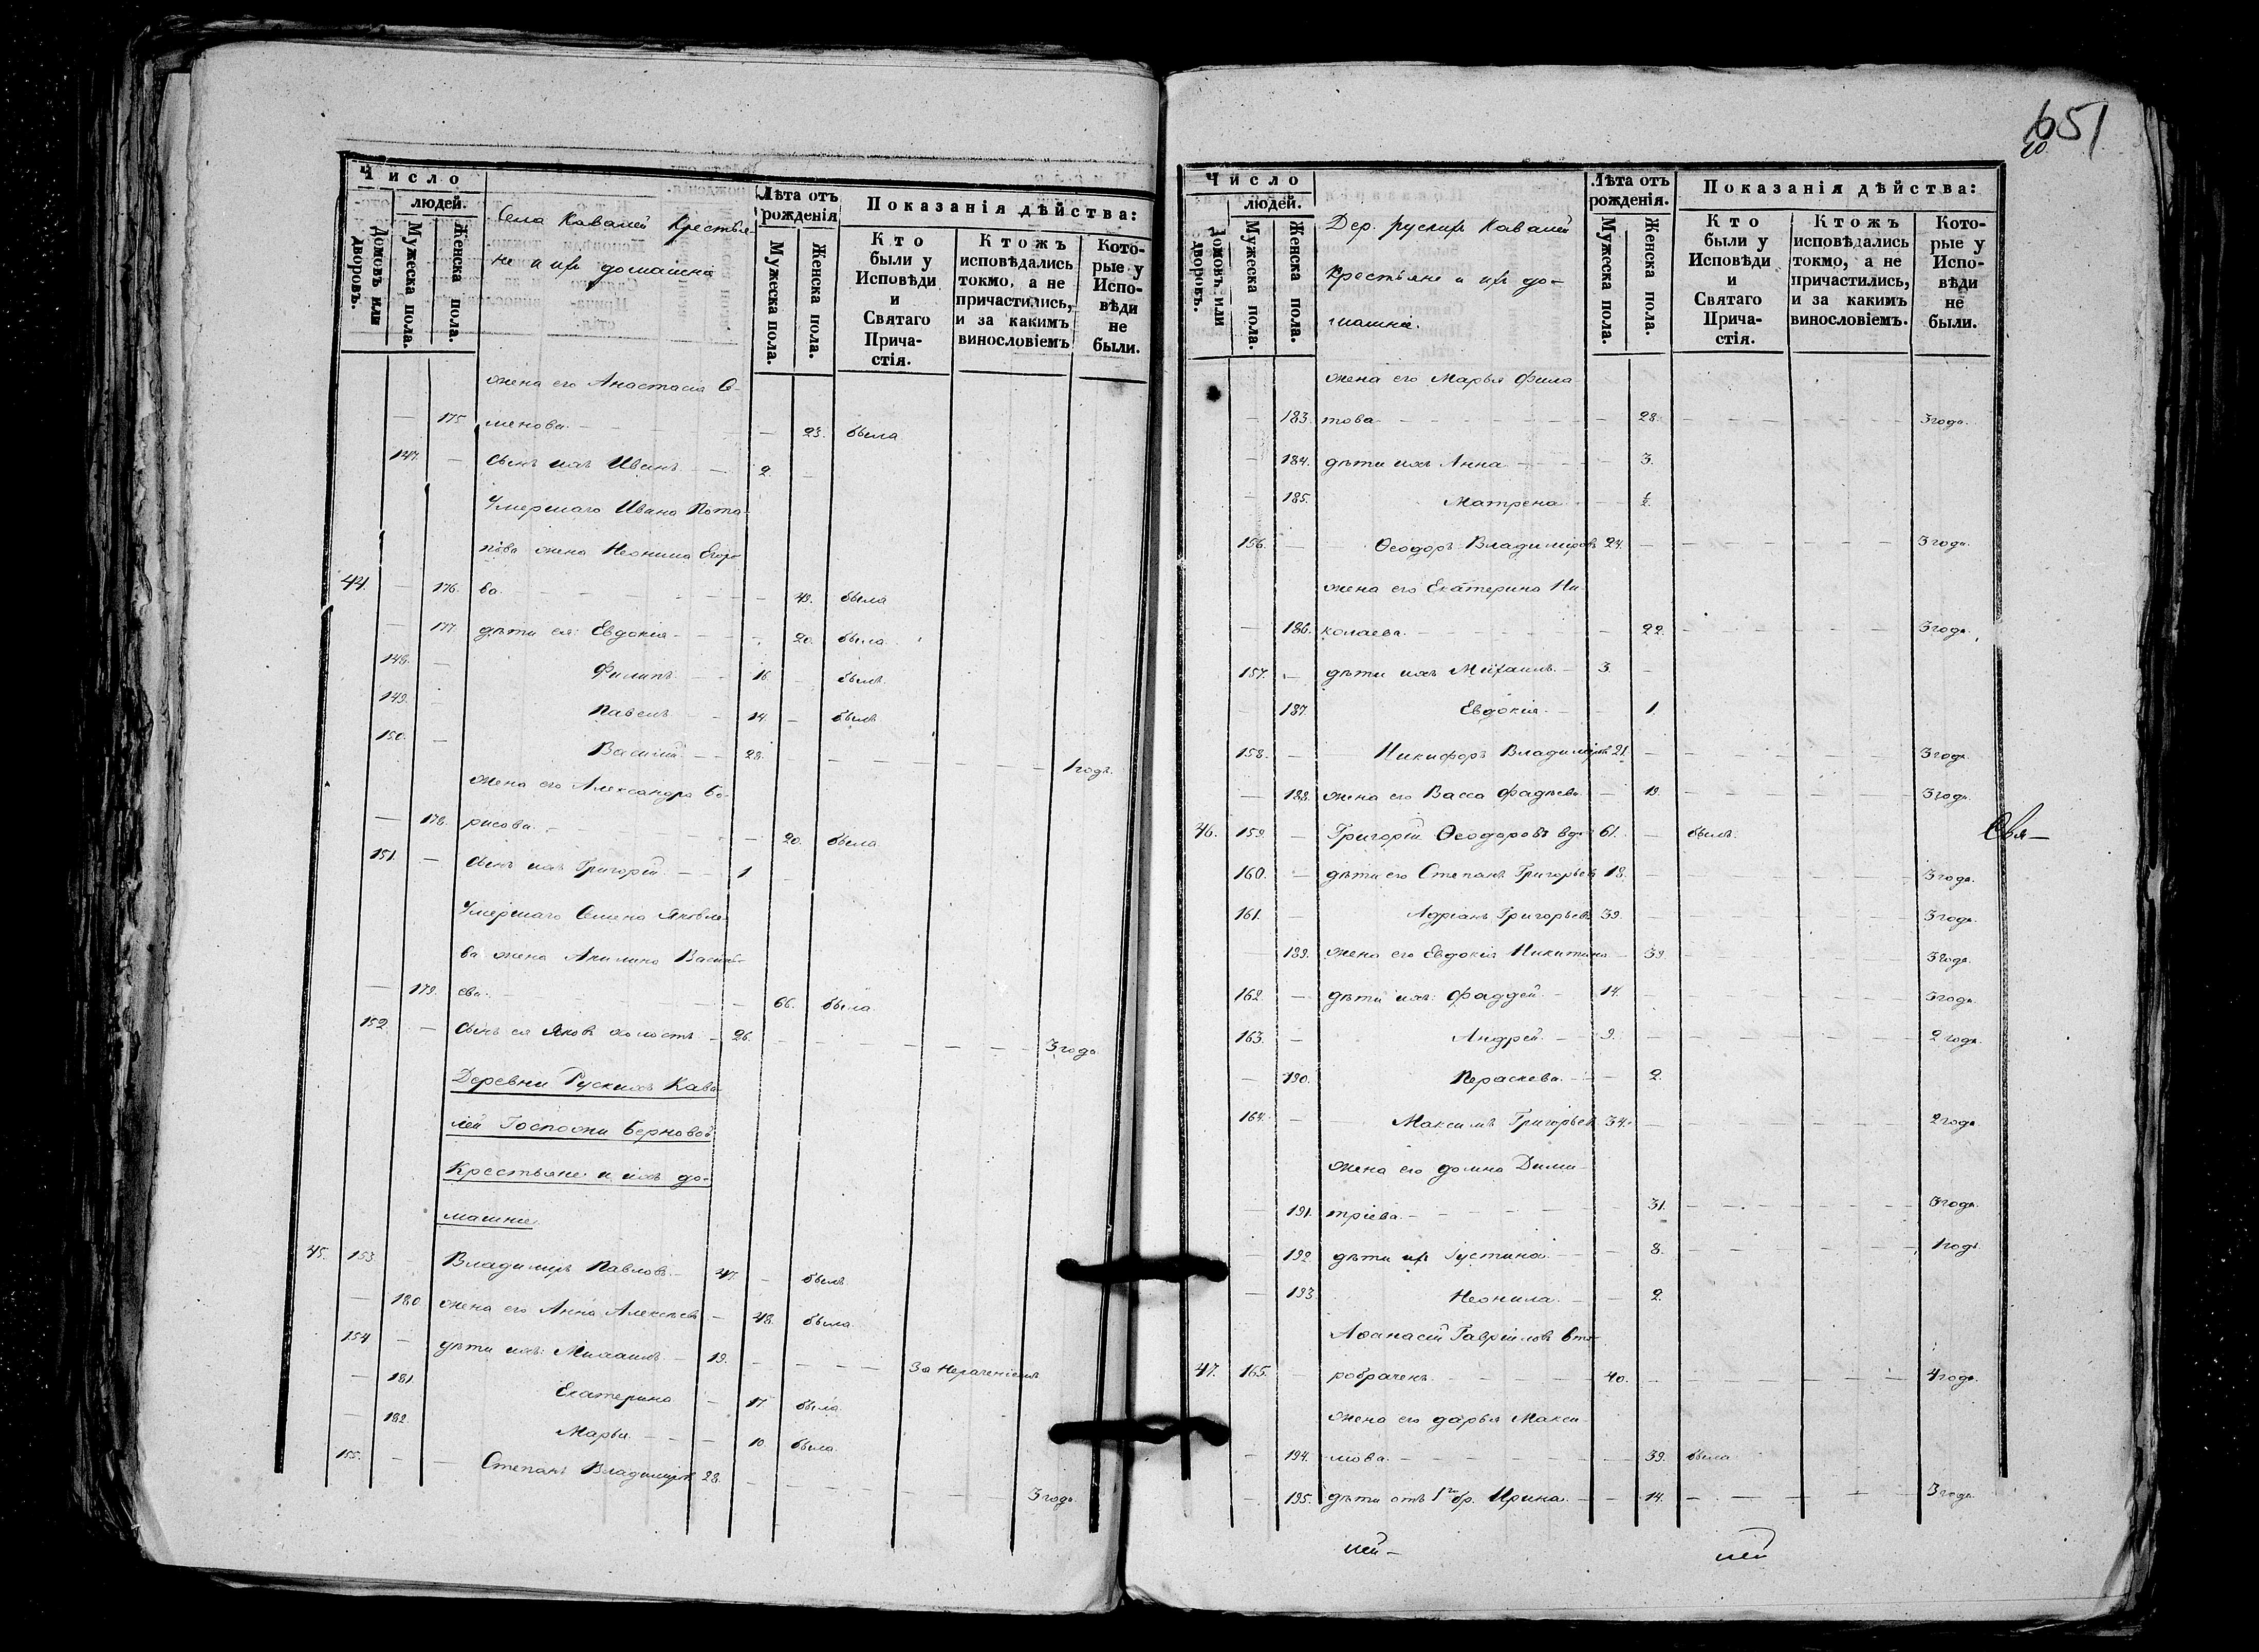 Число
людей.
Домовъ или дворовъ.
Мужеска пола.
Женска пола.
Села Кавалей Крестья-
не и ихъ домашніе
Лѣта отъ рожденія
Мужеска пола.
Женска пола.
Показанія дѣйства:
Кто были у Исповѣди и Святаго Прича-стія.
Ктожъ исповѣдались токмо, а не причастились, и за какимъ винословіемъ
Кото-рые у Испо-вѣди не были.
жена его Анастасія Се-
— 175. менова. — 23. была
147. — сынъ ихъ Иванъ — 2 —
Умершаго Ивана Пота-
пова жена Неонила Егоро-
44. — 176. ва. — 49. была
— 177. дѣти ея: Евдокія — 20. была
148. — Филипъ — 16 — былъ
149. — Павелъ — 14. — былъ
150. — Василій — 28. — 1 годъ.
жена его Александра Бо-
— 178. рисова. — 20. была
151. — сынъ ихъ Григорій — 1 —
Умершаго Семена Яковле-
ва жена Акилина Василь-
— 179. ева. — 66. была
152. — сынъ ея Яковъ холостъ — 26. — 3 года
Деревни Рускихъ Кава-
лей Госпожи Берновой
Крестьяне и ихъ до-
машніе
45. 153. — Владиміръ Павловъ — 47. — былъ
— 180 жена его Анна Алексѣева — 48. была.
154 — дѣти ихъ: Михаилъ — 19. — За нераченіемъ
— 181. Екатерина — 17 была.
— 182. Марья — 10. была.
155. — Степанъ Владиміровъ 28. — 3 года.
651
Число
людей.
Домовъ или дворовъ.
Мужеска пола.
Женска пола.
Дер. рускихъ Кавалей
Крестьяне и ихъ до-
машніе.
Лѣта отъ рожденія.
Мужеска пола.
Женска пола.
Показанія дѣйства:
Кто были у Исповѣди и Святаго Прича-стія.
Ктожъ исповѣдались токмо, а не причастились, и за какимъ винословіемъ.
Кото-рые у Испо-вѣди не были.
жена его Марья Фила-
— 183. това — 28. — 3 года.
— 184. дѣти ихъ Анна — 3.
— 185. Матрена — ½.
156. — Ѳеодоръ Владиміровъ 24. — 3 года.
жена его Екатерина Ни-
— 186. колаева. — 22. — 3 года.
157. — дѣти ихъ Михаилъ — 3. —
— 187. Евдокія. — 1.
158. — Никифоръ Владиміровъ 21. — 3 года
— 188. жена его Васса Фадѣева — 19. — 3 года.
46. 159. — Григорій Ѳеодоровъ вдо- 61. — былъ.
160. — дѣти его Степанъ Григорьевъ 18. — 3 года.
161. — Адріанъ Григорьевъ 39. — 3 года.
— 189. жена его Евдокія Никитина — 39. — 3 года.
162. — дѣти ихъ: Фаддей. — 14. — 3 года.
163. — Андрей — 9. — 2 года.
— 190. Пераскева. — 2.
164. — Максимъ Григорьевъ 34. — 2 года
жена его Домна Дими-
— 191. тріева. — 31. — 3 года.
— 192. дѣти ихъ Густина — 8. — 1 годъ
— 193. Неонила. — 2.
Аѳанасій Гавріиловъ вто-
47. 165. — робраченъ. — 40. — 4 года.
жена его Дарья Макси-
— 194. мова. — 39. была
— 195. дѣти отъ 1го бр. Ирина. — 14. — 3 года.
Свя—